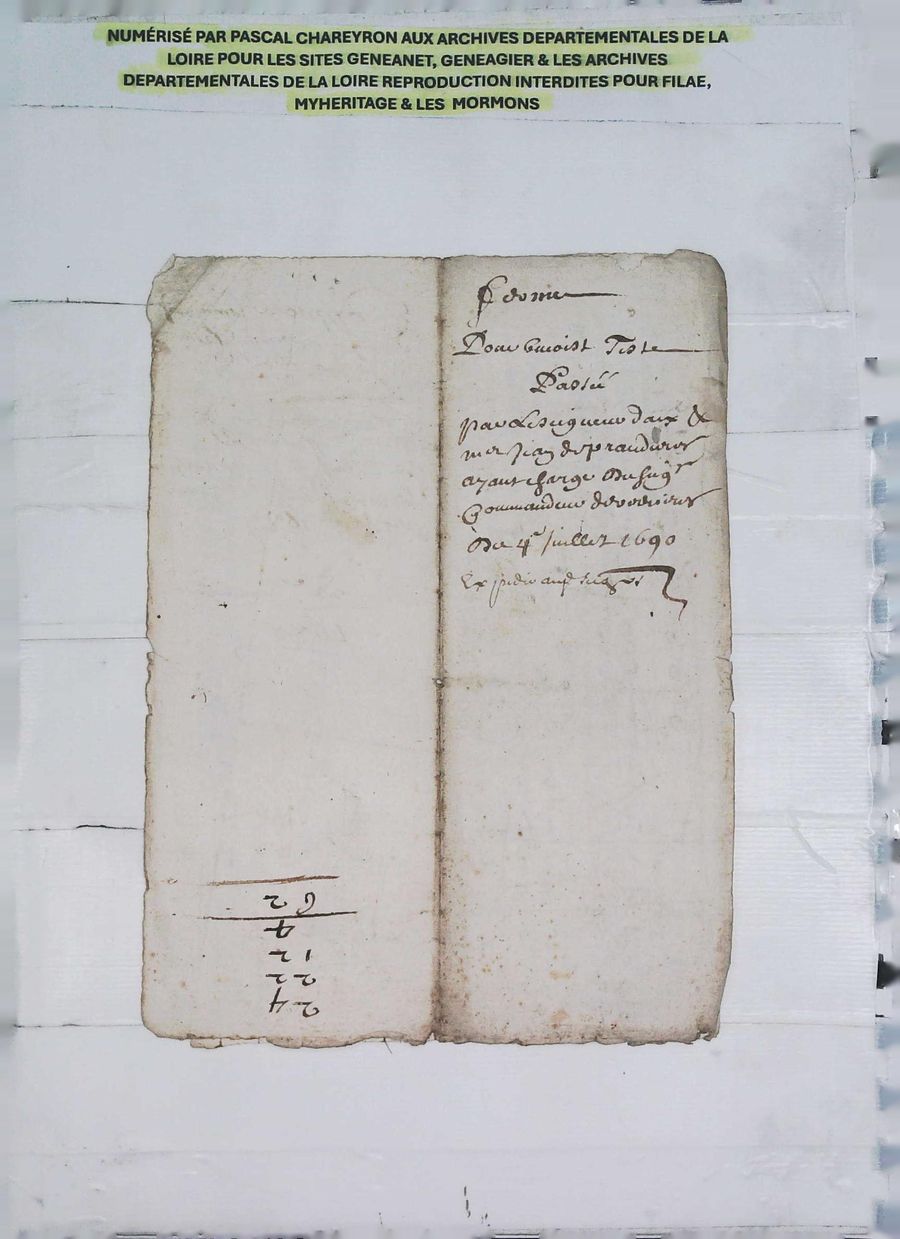 NUMÉRISÉ PAR PASCAL CHAREYRON AUX ARCHIVES DEPARTEMENTALES DE LA
LOIRE POUR LES SITES GENEANET, GENEAGIER & LES ARCHIVES
DEPARTEMENTALES DE LA LOIRE REPRODUCTION INTERDITES POUR FILAE,
MYHERITAGE & LES MORMONS
Ferme
Pour Benoist Tiste
Passée
par Le seigneur daix &
mre Jean de prandieres
ayant charge du seigr
Commandeur de verrieres
Du 4e Juillet 1690
Expedié aud
62
4
12
22
24